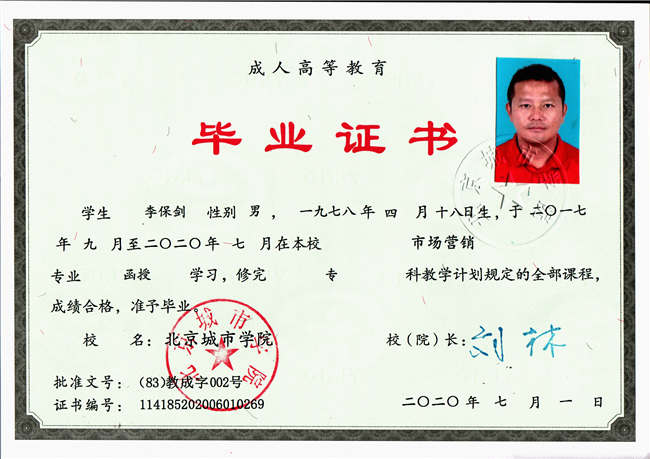 成人高等教育
毕业证书
学生 李保剑 性别 男 ，一九七八年 四 月 十八日生，于 二〇一七
年 九 月至二〇二〇年 七 月在本校 市场营销
专业 函授 学习，修完 专 科教学计划规定的全部课程，
成绩合格，准予毕业。
校 名：北京城市学院 校（院）长：刘林
批准文号：(83)教成字002号
证书编号：114185202006010269 二〇二〇年 七 月 一 日
北京城市学院